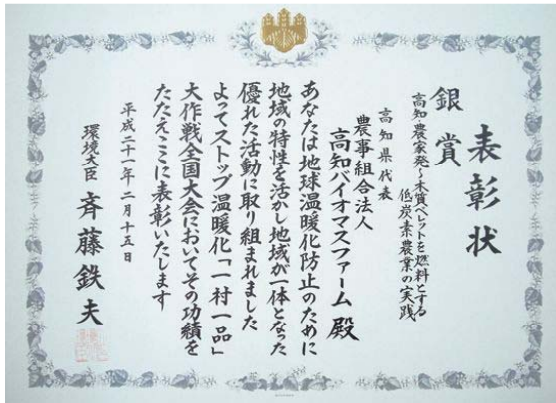 表彰状
銀賞
高知・農家発〜木質ペレットを燃料とする
低炭素農業の実践
高知県代表
農事組合法人
高知バイオマスファーム 殿
あなたは地球温暖化防止のために
地域の特性を活かし地域が一体となった
優れた活動に取り組まれました
よってストップ温暖化「一村一品」
大作戦全国大会においてその功績を
たたえここに表彰いたします
平成二十一年二月十五日
環境大臣 斉藤鉄夫